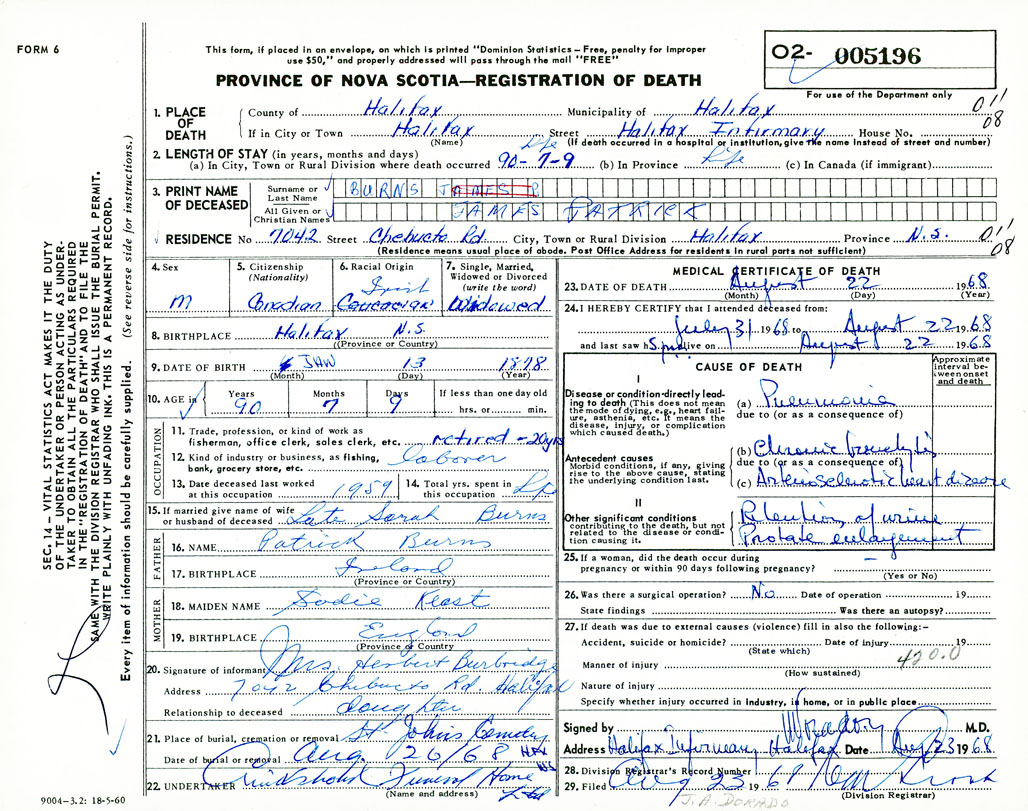 FORM 6
This form, if placed in an envelope, on which is printed "Dominion Statistics – Free, penalty for improper
use $50," and properly addressed will pass through the mail "FREE"
PROVINCE OF NOVA SCOTIA—REGISTRATION OF DEATH
02- 005196
For use of the Department only
011
08
1. PLACE OF DEATH
County of Halifax Municipality of Halifax
If in City or Town Halifax Street Halifax Infirmary House No.
(Name) (If death occurred in a hospital or institution, give the name instead of street and number)
2. LENGTH OF STAY (in years, months and days) Life
(a) In City, Town or Rural Division where death occurred 90-7-9 (b) In Province Life (c) In Canada (if immigrant)
3. PRINT NAME OF DECEASED
Surname or Last Name BURNS JAMES P
All Given or Christian Names JAMES PATRICK
RESIDENCE No 7042 Street Chebucto Rd City, Town or Rural Division Halifax Province N.S. 011
(Residence means usual place of abode. Post Office Address for residents in rural parts not sufficient) 08
4. Sex M
5. Citizenship (Nationality) Canadian
6. Racial Origin Irish Caucasian
7. Single, Married, Widowed or Divorced (write the word) Widowed
8. BIRTHPLACE Halifax N.S.
(Province or Country)
9. DATE OF BIRTH JAN 13 1878
(Month) (Day) (Year)
10. AGE in Years 90 Months 7 Days 9 If less than one day old
hrs. or min.
OCCUPATION
11. Trade, profession, or kind of work as
fisherman, office clerk, sales clerk, etc. retired - 20 yrs
12. Kind of industry or business, as fishing,
bank, grocery store, etc. laborer
13. Date deceased last worked at this occupation 1959
14. Total yrs. spent in this occupation Life
15. If married give name of wife
or husband of deceased Late Sarah Burns
FATHER
16. NAME Patrick Burns
17. BIRTHPLACE Ireland
(Province or Country)
MOTHER
18. MAIDEN NAME Sadie Keast
19. BIRTHPLACE England
(Province or Country)
20. Signature of informant Mrs. Herbert Burbridge
Address 7042 Chebucto Rd. Halifax
Relationship to deceased daughter
21. Place of burial, cremation or removal St Johns Cemetery
Date of burial or removal Aug. 26/68 HFX N.S.
22. UNDERTAKER Funeral Home Ltd
(Name and address)
9004-3.2: 18-5-60
MEDICAL CERTIFICATE OF DEATH
23. DATE OF DEATH August 22 1968
(Month) (Day) (Year)
24. I HEREBY CERTIFY that I attended deceased from:
July 31 1968 to August 22 1968
and last saw h alive on August 22 1968
CAUSE OF DEATH
Approximate interval between onset and death
I
Disease or condition directly leading to death (This does not mean the mode of dying, e.g., heart failure, asthenia, etc. It means the disease, injury, or complication which caused death.)
(a) Pneumonia
due to (or as a consequence of)
Antecedent causes
Morbid conditions, if any, giving rise to the above cause, stating the underlying condition last.
(b) Chronic bronchitis
due to (or as a consequence of)
(c) Arteriosclerotic heart disease
II
Other significant conditions contributing to the death, but not related to the disease or condition causing it.
Retention of urine
Prostate enlargement
25. If a woman, did the death occur during
pregnancy or within 90 days following pregnancy? –
(Yes or No)
26. Was there a surgical operation? No Date of operation 19
State findings Was there an autopsy?
27. If death was due to external causes (violence) fill in also the following:-
Accident, suicide or homicide? Date of injury 19
(State which) 420.0
Manner of injury
(How sustained)
Nature of injury
Specify whether injury occurred in Industry, in home, or in public place
Signed by M.D.
Address Halifax Infirmary Halifax Date Aug 23 1968
28. Division Registrar's Record Number
29. Filed Aug 23 1968
(Division Registrar)
J.A. DORADO
SEC. 14 – VITAL STATISTICS ACT MAKES IT THE DUTY
OF THE UNDERTAKER OR PERSON ACTING AS UNDER-
TAKER TO OBTAIN ALL THE PARTICULARS REQUIRED
IN THE "REGISTRATION OF DEATH" AND TO FILE THE
SAME WITH THE DIVISION REGISTRAR WHO SHALL ISSUE THE BURIAL PERMIT.
WRITE PLAINLY WITH UNFADING INK. THIS IS A PERMANENT RECORD.
Every item of information should be carefully supplied. (See reverse side for instructions.)